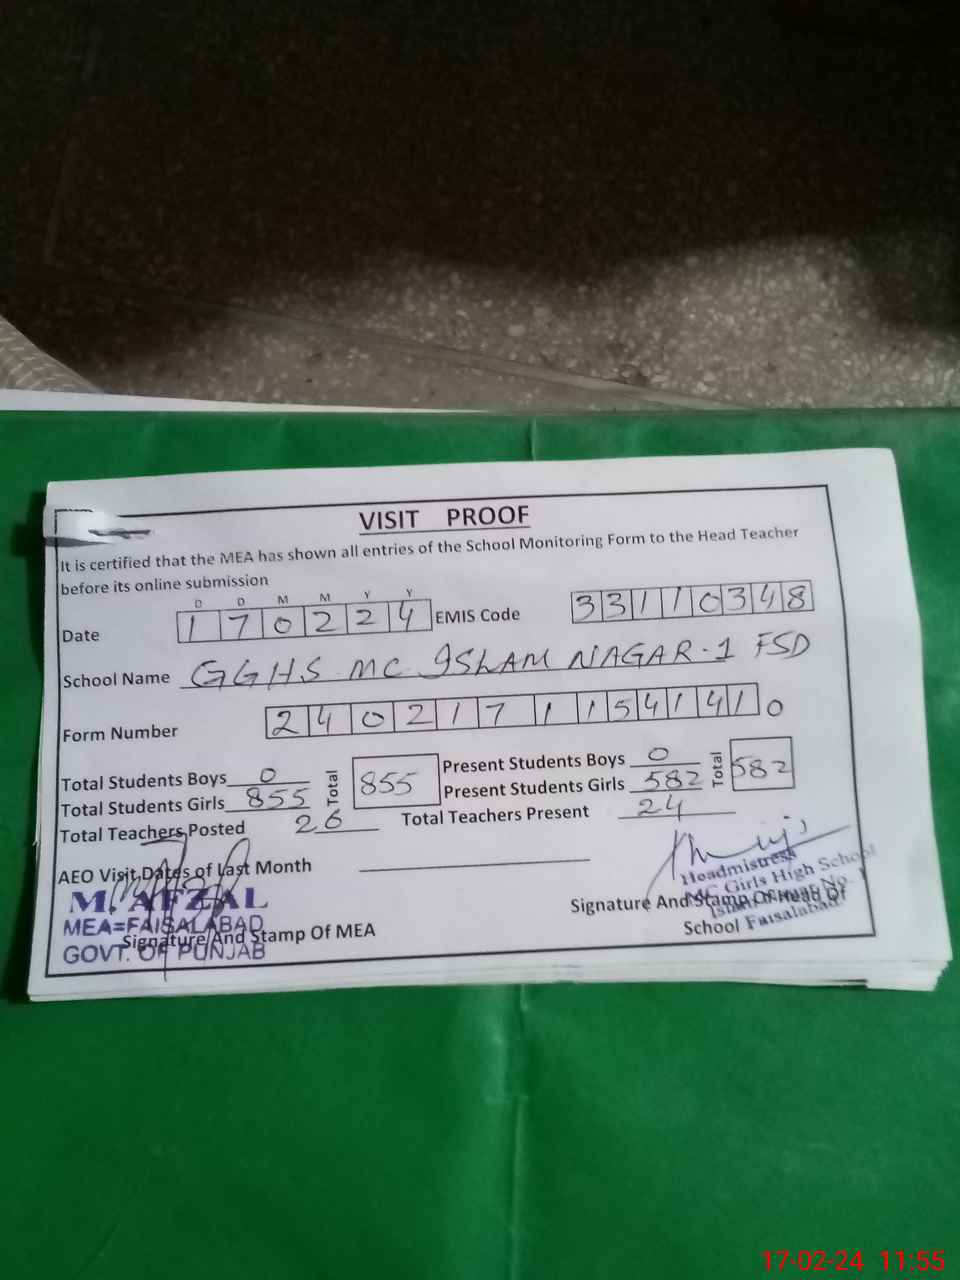 VISIT PROOF
It is certified that the MEA has shown all entries of the School Monitoring Form to the Head Teacher
before its online submission
D D M M Y Y
Date 170224 EMIS Code 33110348
School Name GGHS MC ISLAM NAGAR-1 FSD
Form Number 24021711541410
Total Students Boys 0 Total 855 Present Students Boys 0 Total 582
Total Students Girls 855 Present Students Girls 582
Total Teachers Posted 26 Total Teachers Present 24
AEO Visit Dates of Last Month
Headmistress
MC Girls High School
Islam Nagar No. 1
Faisalabad
M. AFZAL
MEA=FAISALABAD
GOVT. OF PUNJAB
Signature And Stamp Of MEA
Signature And Stamp Of Head Of
School
17-02-24 11:55